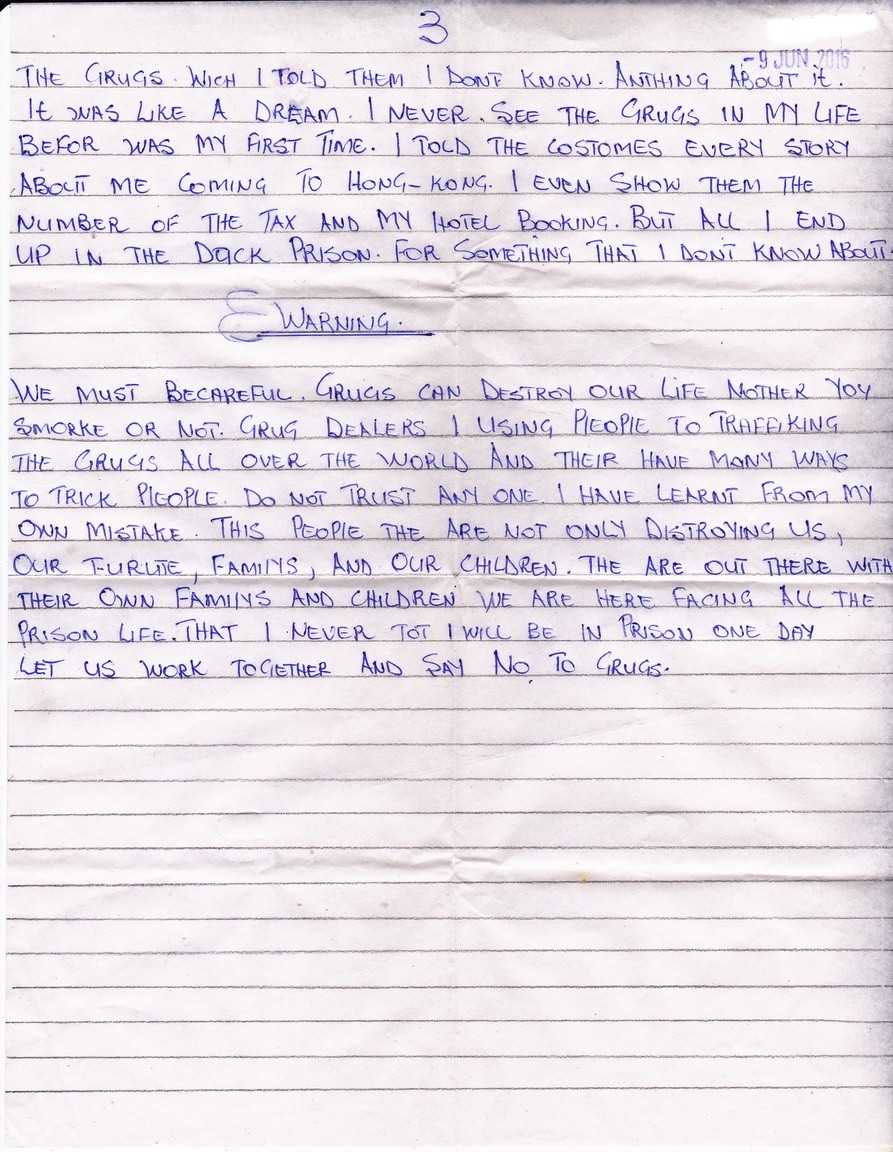 3
-9 JUN 2016
THE GRUGS. WICH I TOLD THEM I DONT KNOW. ANTHING ABOUT it.
It WAS LIKE A DREAM. I NEVER. SEE THE GRUGS IN MY LIFE
BEFOR WAS MY FIRST TIME. I TOLD THE COSTOMES EVERY STORY
ABOUT ME COMING TO HONG-KONG. I EVEN SHOW THEM THE
NUMBER OF THE TAX AND MY HOTEL BOOKING. BUT ALL I END
UP IN THE DOCK PRISON. FOR SOMETHING THAT I DON'T KNOW ABOUT.
WARNING.
WE MUST BECAREFUL. GRUGS CAN DESTROY OUR LIFE WOTHER YOY
SMORKE OR NOT. GRUG DEALERS I USING PIEOPIE TO TRAFFIKING
THE GRUGS ALL OVER THE WORLD AND THEIR HAVE MANY WAYS
TO TRICK PIEOPLE. DO NOT TRUST ANY ONE. I HAVE LEARNT FROM MY
OWN MISTAKE. THIS PEOPIE THE ARE NOT ONLY DISTROYING US,
OUR FURUTE, FAMIIYS, AND OUR CHILDREN. THE ARE OUT THERE WITH
THEIR OWN FAMIIYS AND CHILDREN WE ARE HERE FACING ALL THE
PRISON LIFE. THAT I NEVER TOT I WILL BE IN PRISON ONE DAY
LET US WORK TOGETHER AND SAY NO TO GRUGS.